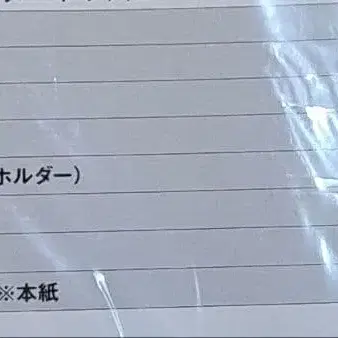 ホルダー）
※本紙